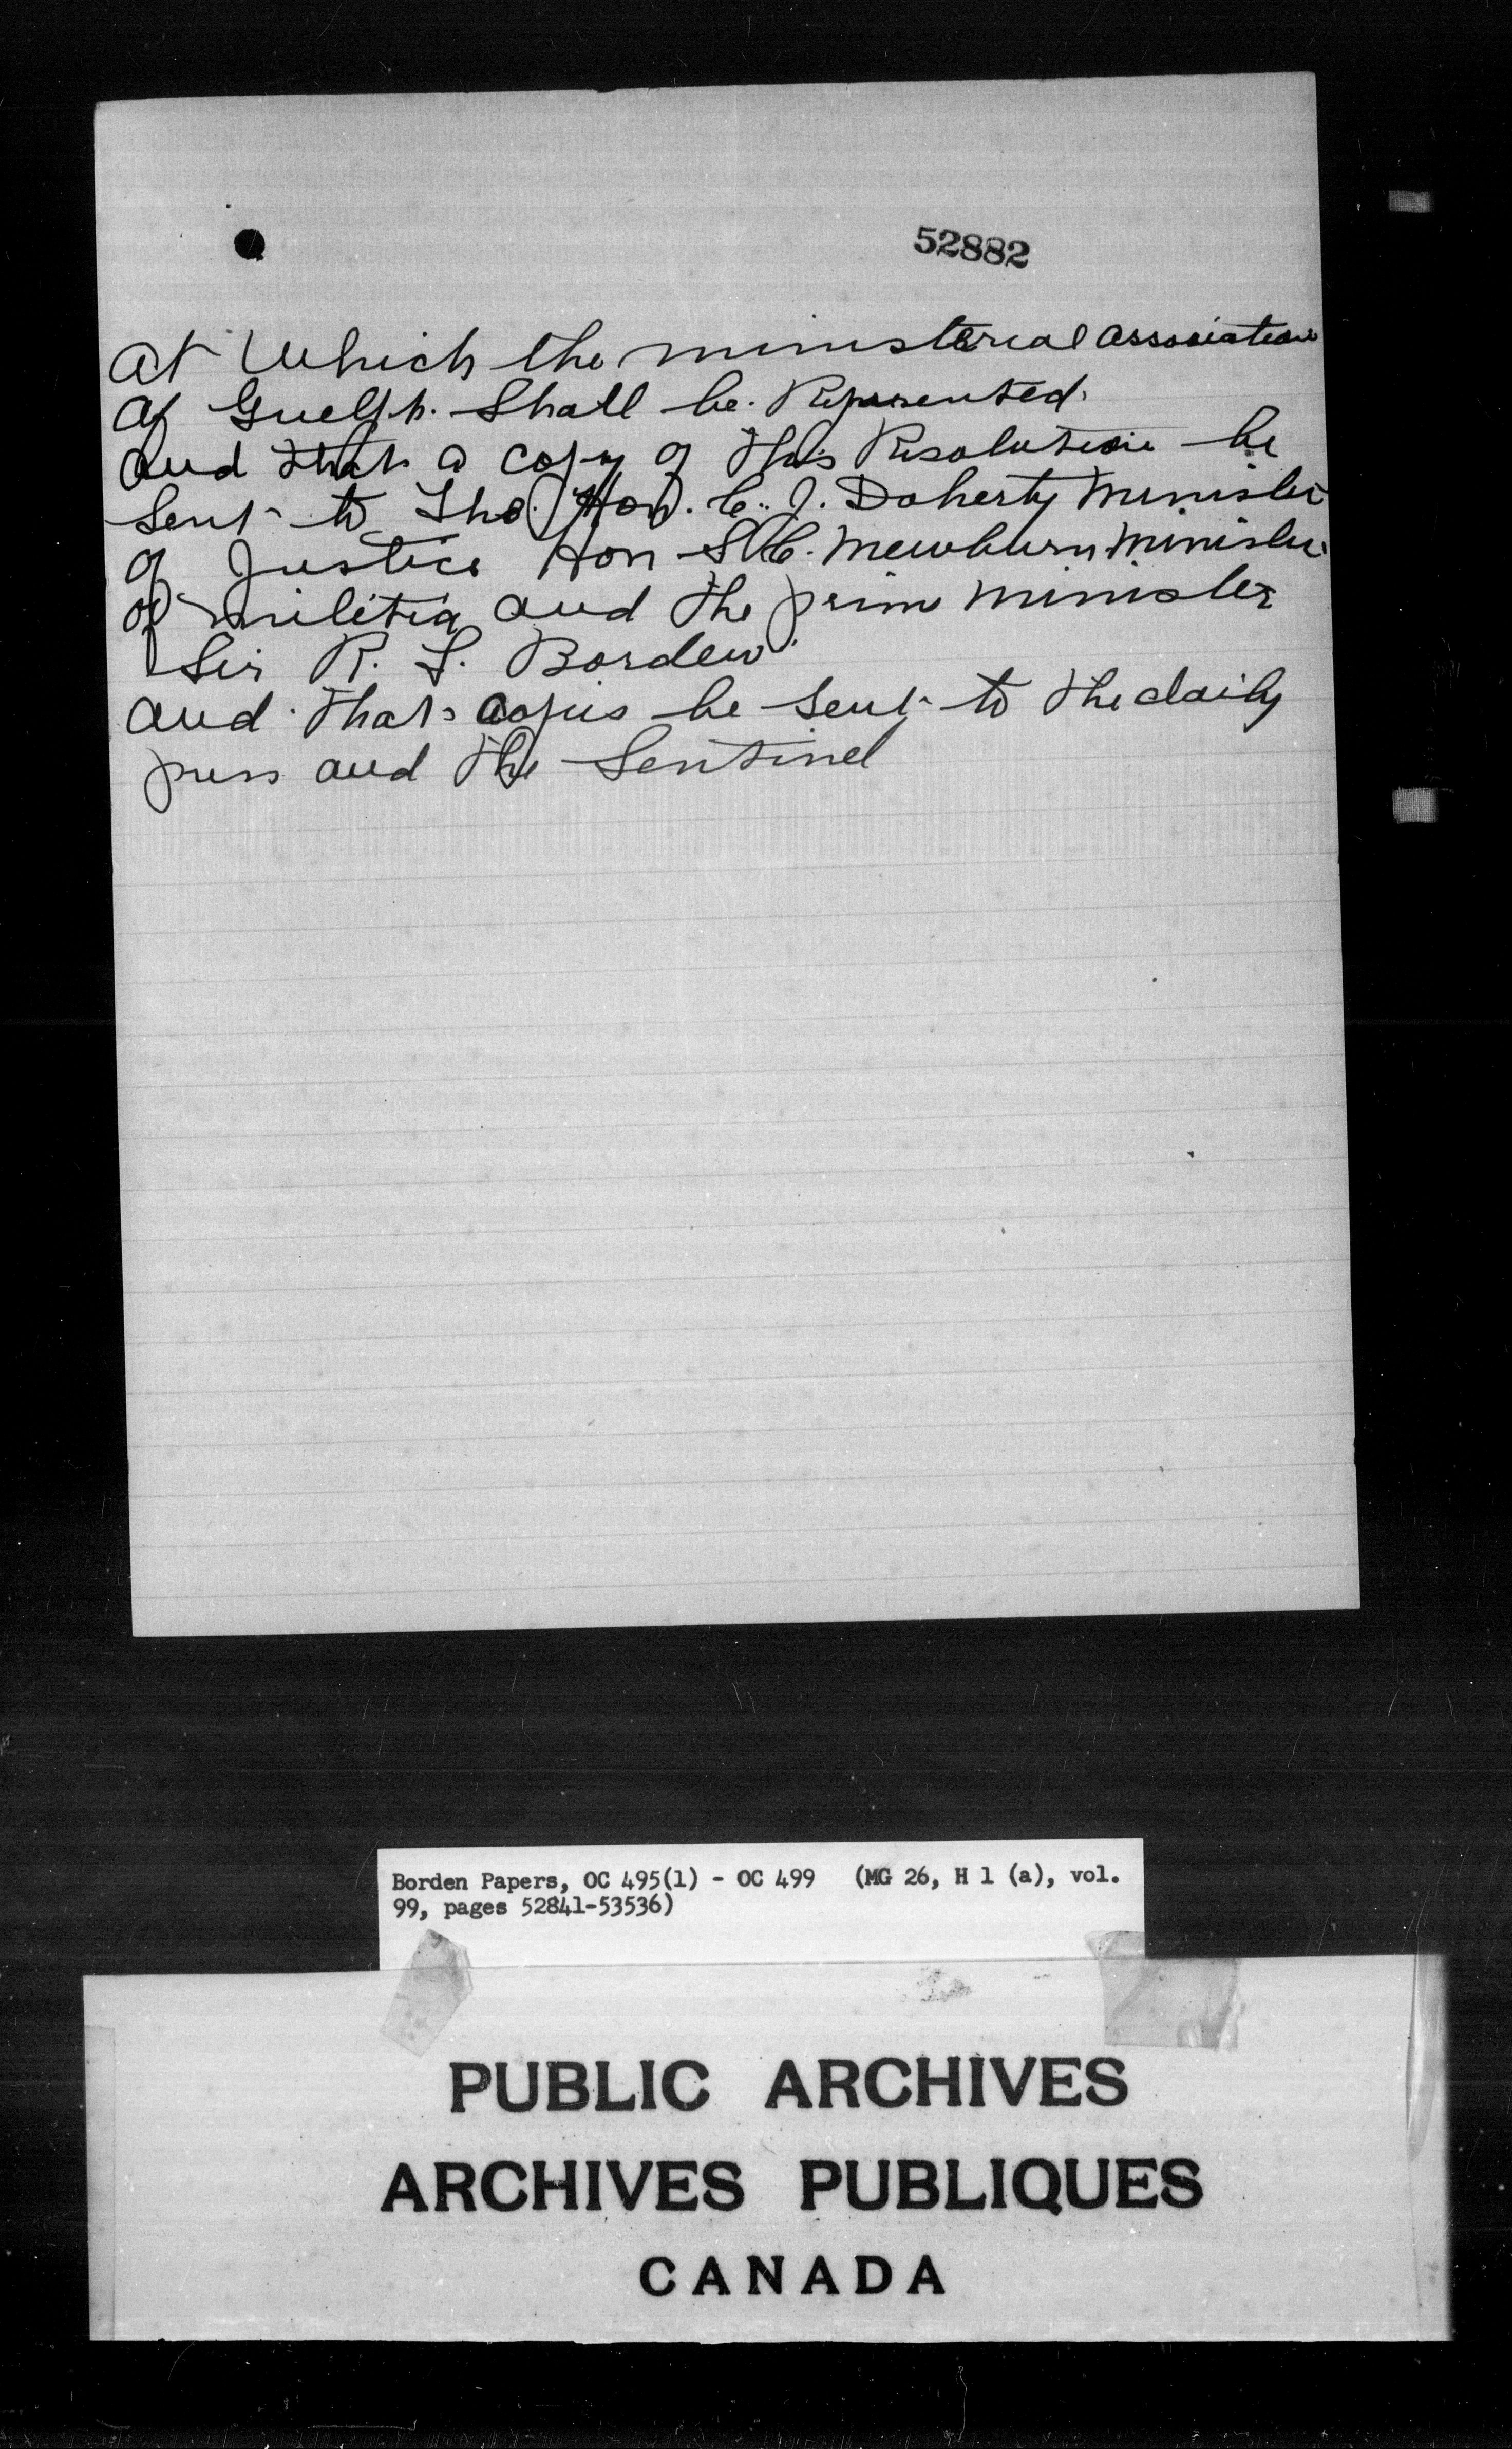 52882
at Which the ministerial association
of Guelph. Shall be. Represented.
and that a copy of this Resolution be
Sent to The. Hon. C. J. Doherty Minister
of Justice Hon S C. Mewburn Minister
of militia and the prime minister
Sir R. L. Borden
and that copies be sent to the daily
press and the Sentinel
Borden Papers, OC 495(1) - OC 499 (MG 26, H 1 (a), vol.
99, pages 52841-53536)
PUBLIC ARCHIVES
ARCHIVES PUBLIQUES
CANADA